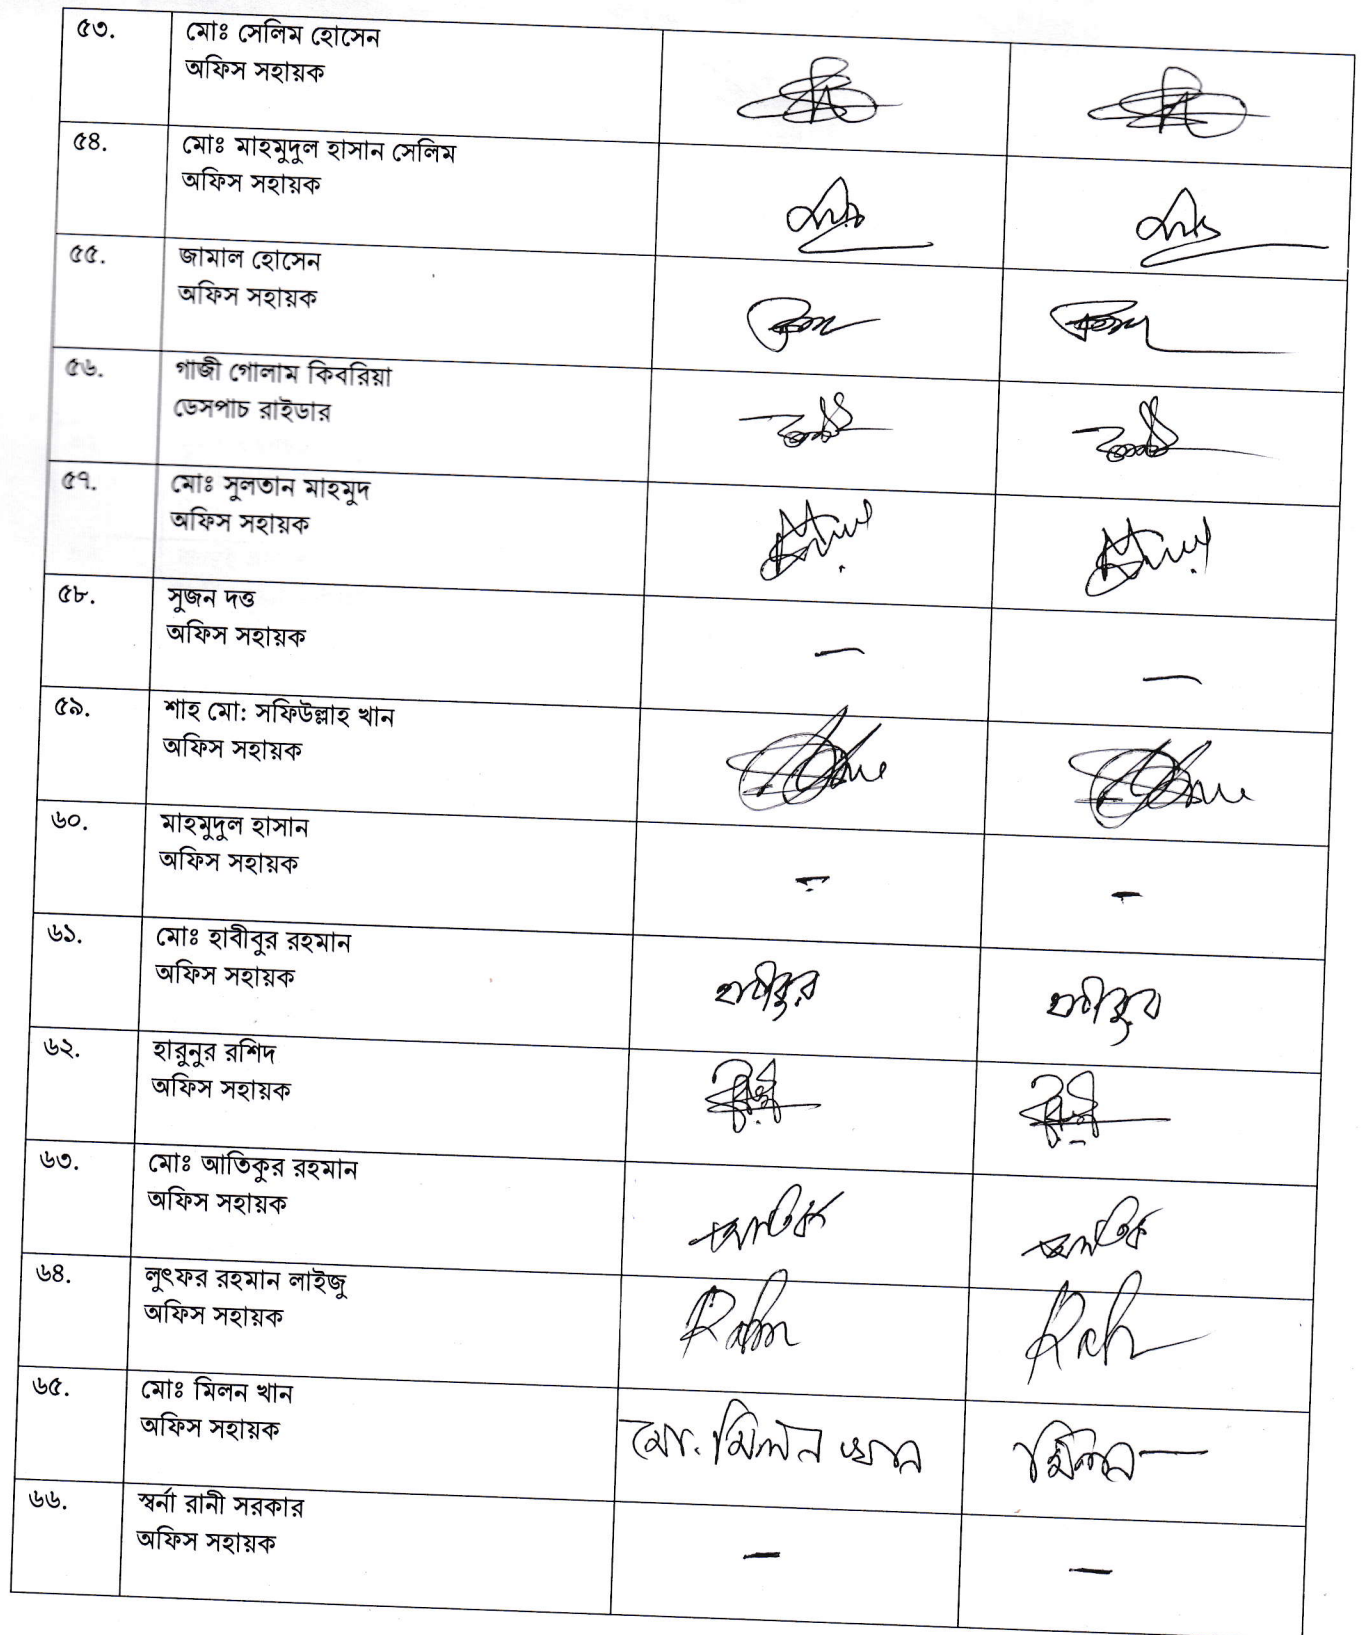 ৫৩.
মোঃ সেলিম হোসেন
অফিস সহায়ক
৫৪.
মোঃ মাহমুদুল হাসান সেলিম
অফিস সহায়ক
৫৫.
জামাল হোসেন
অফিস সহায়ক
৫৬.
গাজী গোলাম কিবরিয়া
ডেসপাচ রাইডার
৫৭.
মোঃ সুলতান মাহমুদ
অফিস সহায়ক
৫৮.
সুজন দত্ত
অফিস সহায়ক
— —
৫৯.
শাহ মো: সফিউল্লাহ খান
অফিস সহায়ক
৬০.
মাহমুদুল হাসান
অফিস সহায়ক
- -
৬১.
মোঃ হাবীবুর রহমান
অফিস সহায়ক
হাবীবুর হাবীবুর
৬২.
হারুনুর রশিদ
অফিস সহায়ক
৬৩.
মোঃ আতিকুর রহমান
অফিস সহায়ক
আতিক আতিক
৬৪.
লুৎফর রহমান লাইজু
অফিস সহায়ক
৬৫.
মোঃ মিলন খান
অফিস সহায়ক
মো. মিলন খান মিলন
৬৬.
স্বর্না রানী সরকার
অফিস সহায়ক
- -